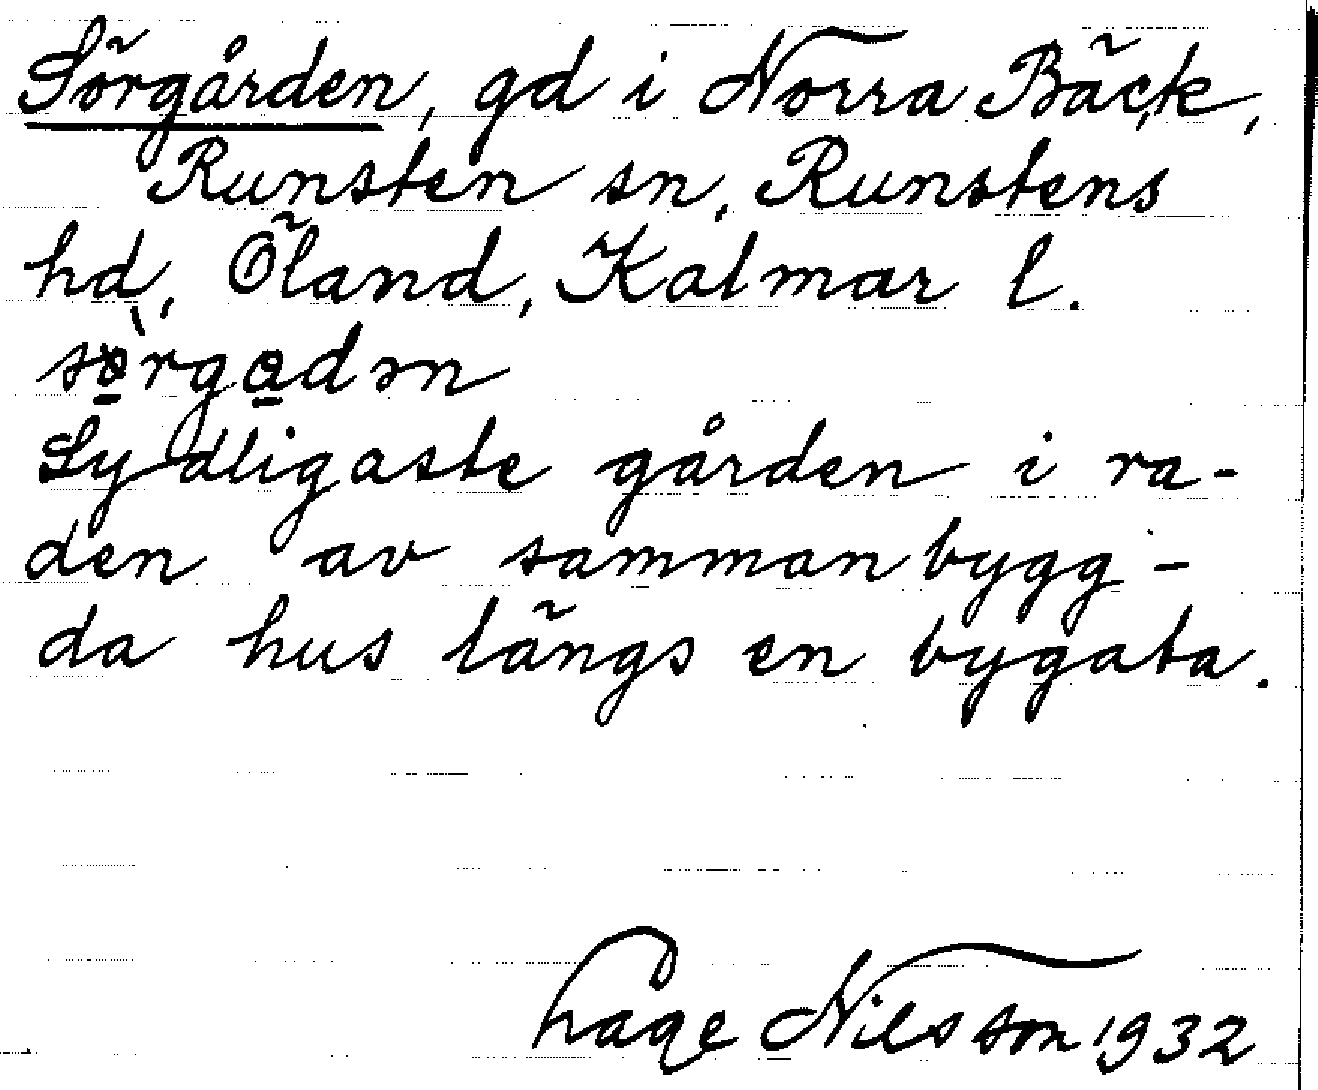 Sörgården, gd i Norra Bäck,
Runsten sn, Runstens
hd, Öland, Kalmar l.
Sydligaste gården i ra-
den av sammanbygg-
da hus längs en bygata.
Nilsson 1932